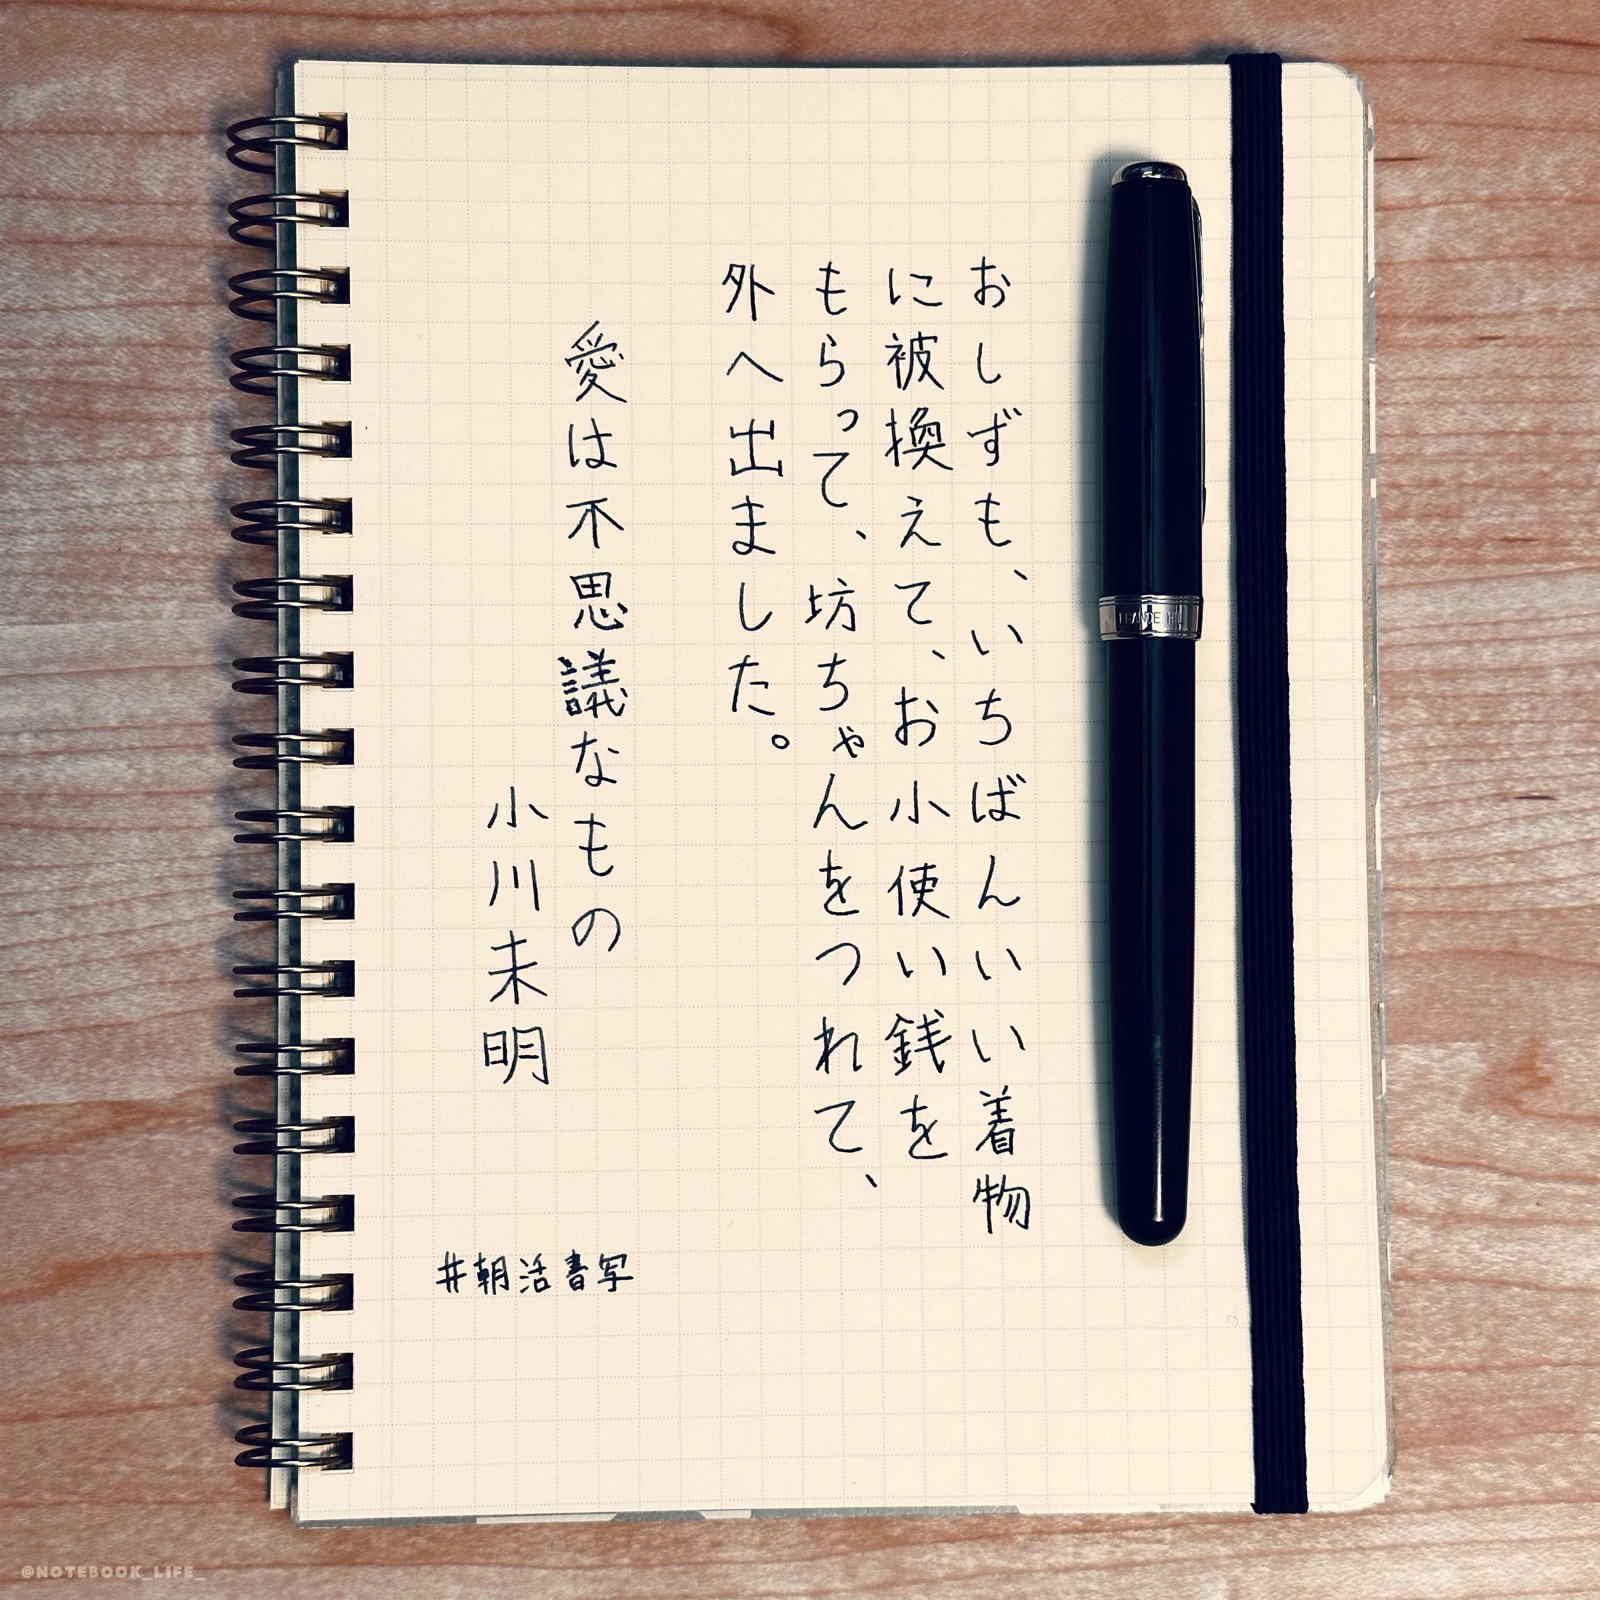 おしずも、いちばんいい着物
に被換えて、お小使い銭を
もらって、坊ちゃんをつれて、
外へ出ました。
愛は不思議なもの
小川未明
#朝活書写
@NOTEBOOK_LIFE_